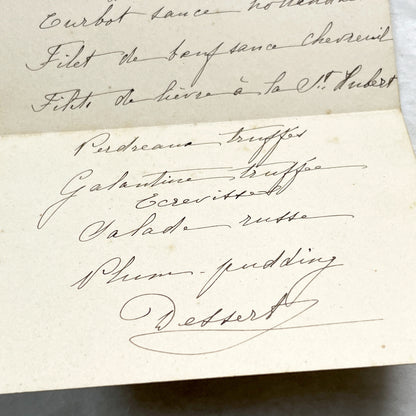 Turbot sauce hollandaise
Filet de bœuf sauce chevreuil
Filets de lièvre à la St Hubert
Perdreaux truffés
Galantine truffée
Ecrevisses
Salade russe
Plum-pudding
Dessert